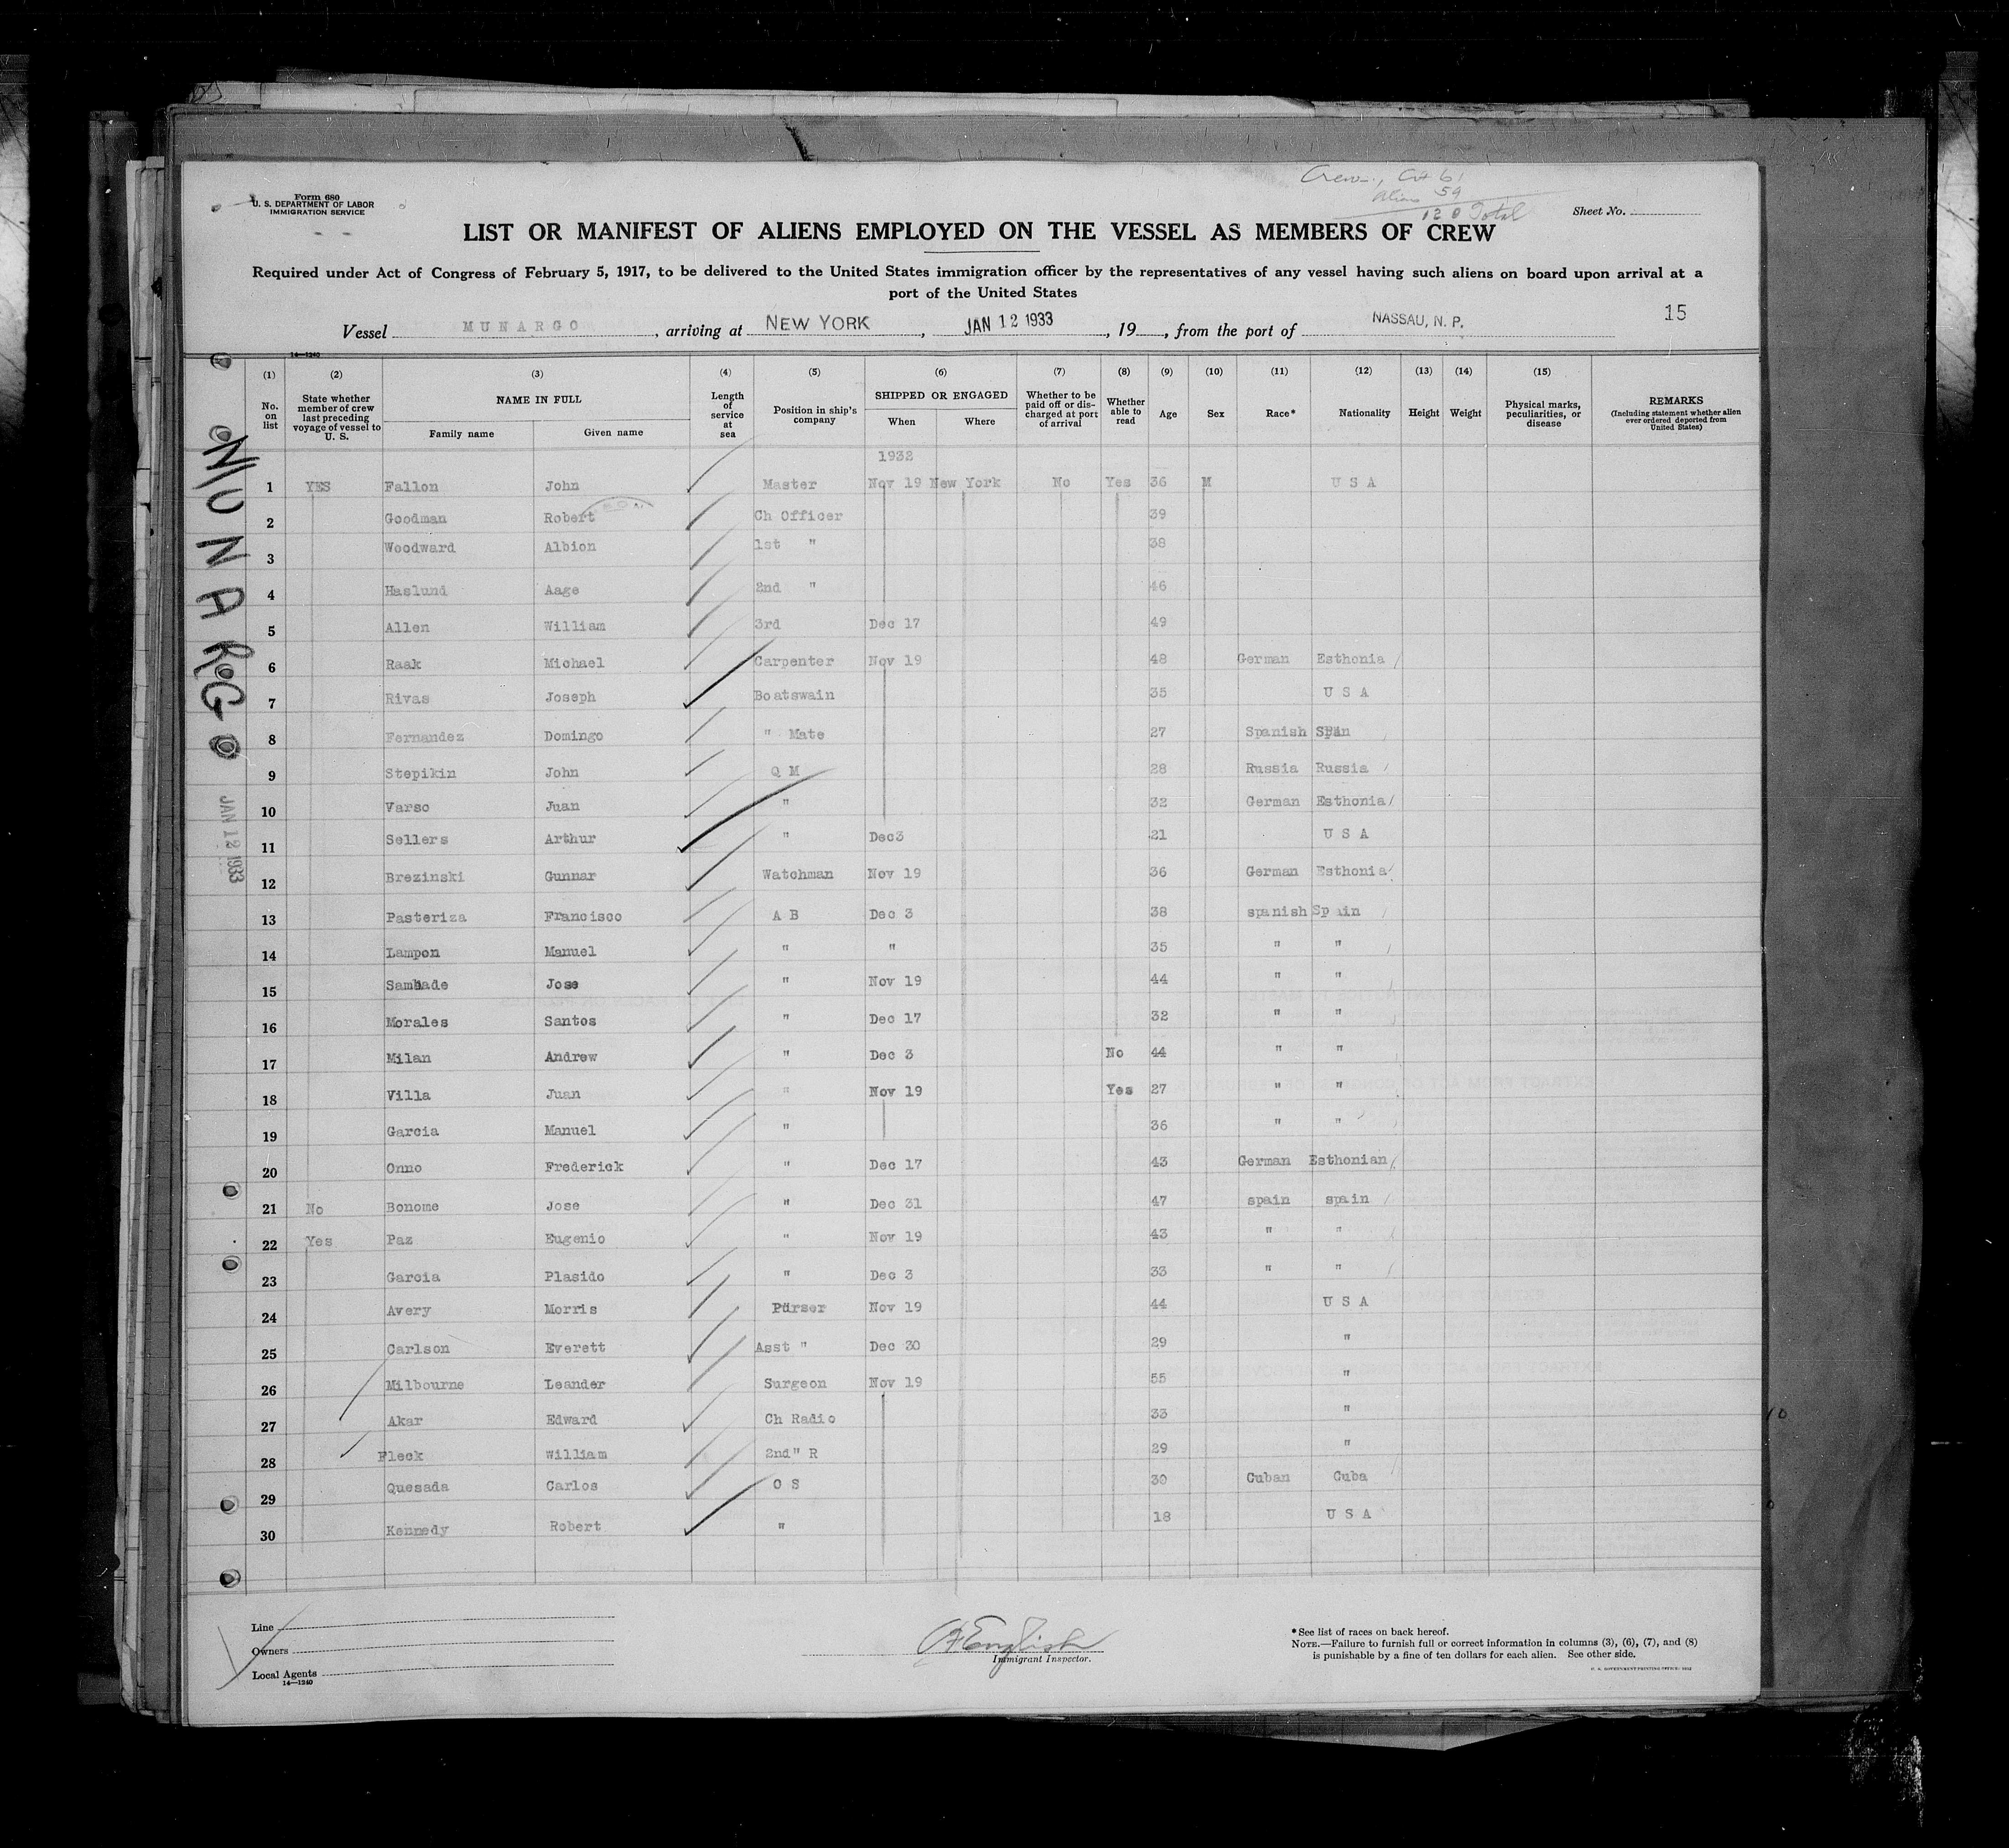 Form 680
U. S. DEPARTMENT OF LABOR
IMMIGRATION SERVICE
Crew, Cit 61
Alien 59
120 Total
Sheet No.
LIST OR MANIFEST OF ALIENS EMPLOYED ON THE VESSEL AS MEMBERS OF CREW
Required under Act of Congress of February 5, 1917, to be delivered to the United States immigration officer by the representatives of any vessel having such aliens on board upon arrival at a
port of the United States
15
Vessel MUNARGO, arriving at NEW YORK, JAN 12 1933, 19, from the port of NASSAU, N. P.
14—1240
(1) (2) (3) (4) (5) (6) (7) (8) (9) (10) (11) (12) (13) (14) (15)
No. on list
State whether member of crew last preceding voyage of vessel to U. S.
NAME IN FULL
Family name Given name
Length of service at sea
Position in ship's company
SHIPPED OR ENGAGED
When Where
Whether to be paid off or discharged at port of arrival
Whether able to read
Age
Sex
Race*
Nationality
Height
Weight
Physical marks, peculiarities, or disease
REMARKS
(Including statement whether alien ever ordered deported from United States)
MUNARGO
JAN 12 1933
1932
1 YES Fallon John Master Nov 19 New York No Yes 36 M U S A
2 Goodman Robert Ch Officer 39
3 Woodward Albion 1st " 38
4 Haslund Aage 2nd " 46
5 Allen William 3rd Dec 17 49
6 Raak Michael Carpenter Nov 19 48 German Esthonia
7 Rivas Joseph Boatswain 35 U S A
8 Fernandez Domingo " Mate 27 Spanish Spain
9 Stepikin John Q M 28 Russia Russia
10 Varso Juan " 32 German Esthonia
11 Sellers Arthur " Dec3 21 U S A
12 Brezinski Gunnar Watchman Nov 19 36 German Esthonia
13 Pasteriza Francisco A B Dec 3 38 spanish Spain
14 Lampon Manuel " " 35 " "
15 Sambade Jose " Nov 19 44 " "
16 Morales Santos " Dec 17 32 " "
17 Milan Andrew " Dec 3 No 44 " "
18 Villa Juan " Nov 19 Yes 27 " "
19 Garcia Manuel " 36 " "
20 Onno Frederick " Dec 17 43 German Esthonian
21 No Bonome Jose " Dec 31 47 spain spain
22 Yes Paz Eugenio " Nov 19 43 " "
23 Garcia Plasido " Dec 3 33 " "
24 Avery Morris Purser Nov 19 44 U S A
25 Carlson Everett Asst " Dec 30 29 "
26 Milbourne Leander Surgeon Nov 19 55 "
27 Akar Edward Ch Radio 33 "
28 Fleck William 2nd " R 29 "
29 Quesada Carlos O S 30 Cuban Cuba
30 Kennedy Robert " 18 U S A
Line
Owners
Local Agents
14—1240
English
Immigrant Inspector.
*See list of races on back hereof.
NOTE.—Failure to furnish full or correct information in columns (3), (6), (7), and (8)
is punishable by a fine of ten dollars for each alien. See other side.
U. S. GOVERNMENT PRINTING OFFICE: 1932